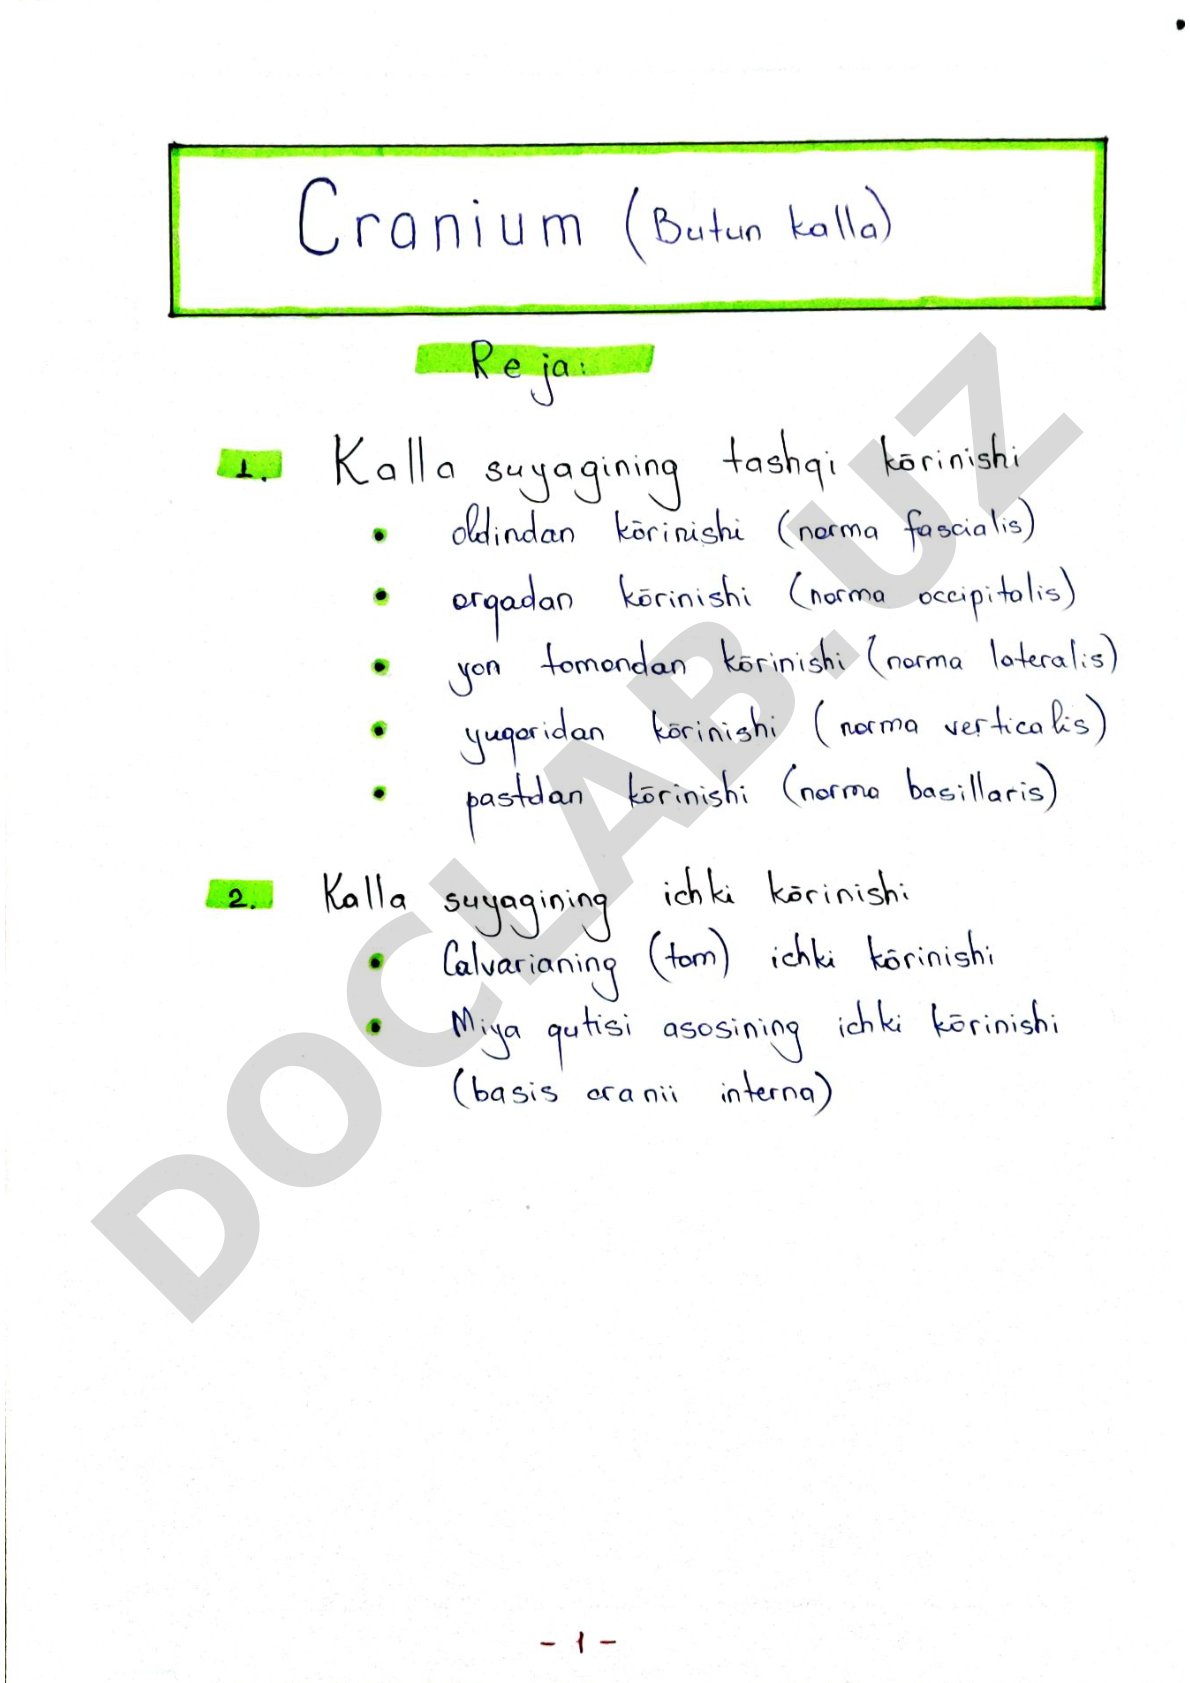 Cranium (Butun kalla)
Reja:
1. Kalla suyagining tashqi kōrinishi
• oldindan kōrinishi (norma fascialis)
• orqadan kōrinishi (norma occipitalis)
• yon tomondan kōrinishi (norma lateralis)
• yuqoridan kōrinishi (norma verticalis)
• pastdan kōrinishi (norma basillaris)
2. Kalla suyagining ichki kōrinishi
• Calvarianing (tom) ichki kōrinishi
• Miya qutisi asosining ichki kōrinishi
(basis cranii interna)
DOCLAB.UZ
- 1 -